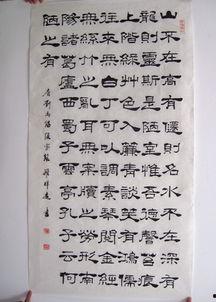 山不在高有僊則名水不在深有
龍則靈斯是陋室惟吾德馨苔痕
上階綠草色入簾青談笑有鴻儒
往來無白丁可以調素琴閱金經
無絲竹之亂耳無案牘之勞形南
陽諸葛廬西蜀子雲亭孔子云何
陋之有
劉禹錫陋室銘